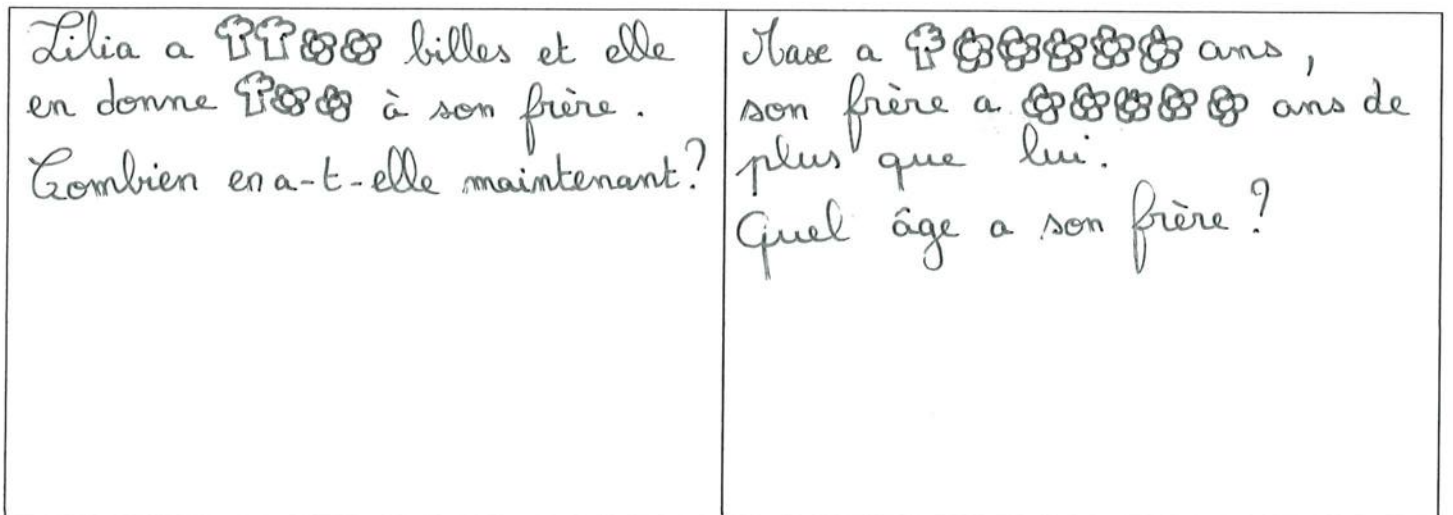 Lilia a billes et elle
en donne à son frère.
Combien en a-t-elle maintenant?
a ans,
son frère a ans de
plus que lui.
Quel âge a son frère?